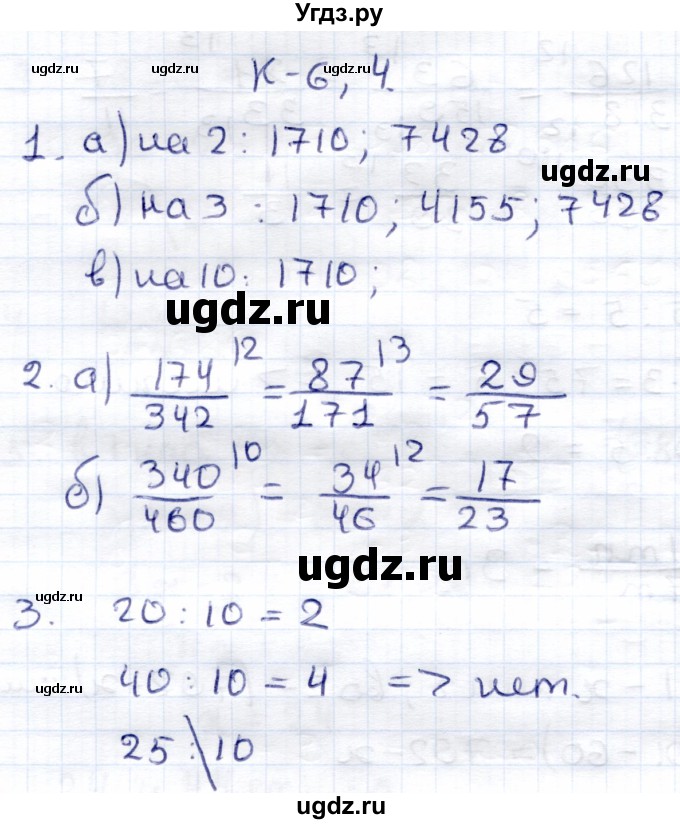 Угдз.ру
ugdz.ru ugdz.ru ugdz.ru
К-6, 4.
1. а) на 2: 1710; 7428
ugdz.ru
б) на 3: 1710; 4155; 7428
в) на 10: 1710;
ugdz.ru
2. а) 174/342 |2 = 87/171 |3 = 29/57
б) 340/460 |10 = 34/46 |2 = 17/23
ugdz.ru
ugdz.ru
3. 20 : 10 = 2
40 : 10 = 4 => нет.
ugdz.ru
25 : \ 10
ugdz.ru